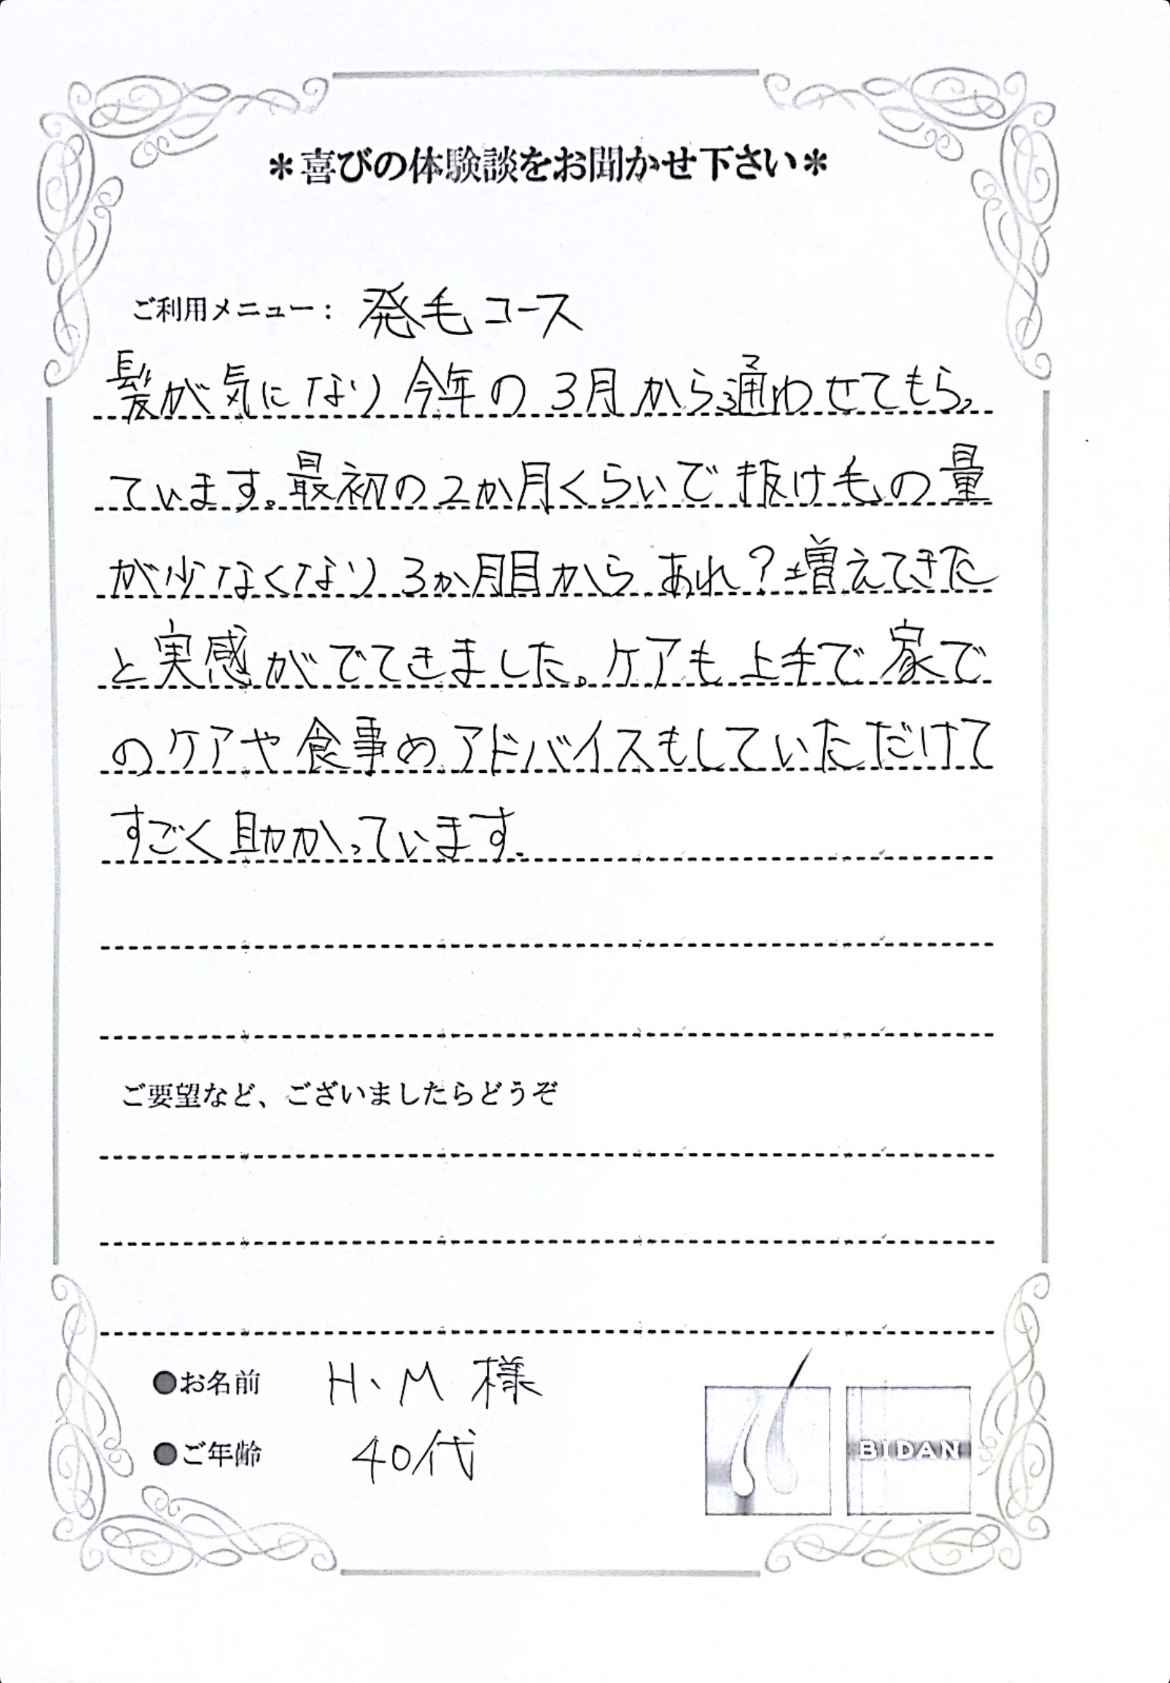 ＊喜びの体験談をお聞かせ下さい＊
ご利用メニュー： 発毛コース
髪が気になり今年の3月から通わせてもらっ
ています。最初の2か月くらいで抜け毛の量
が少なくなり3か月目からあれ?増えてきた
と実感がでてきました。ケアも上手で家で
のケアや食事のアドバイスもしていただけて
すごく助かっています。
ご要望など、ございましたらどうぞ
●お名前 H、M 様
●ご年齢 40代
BIDAN